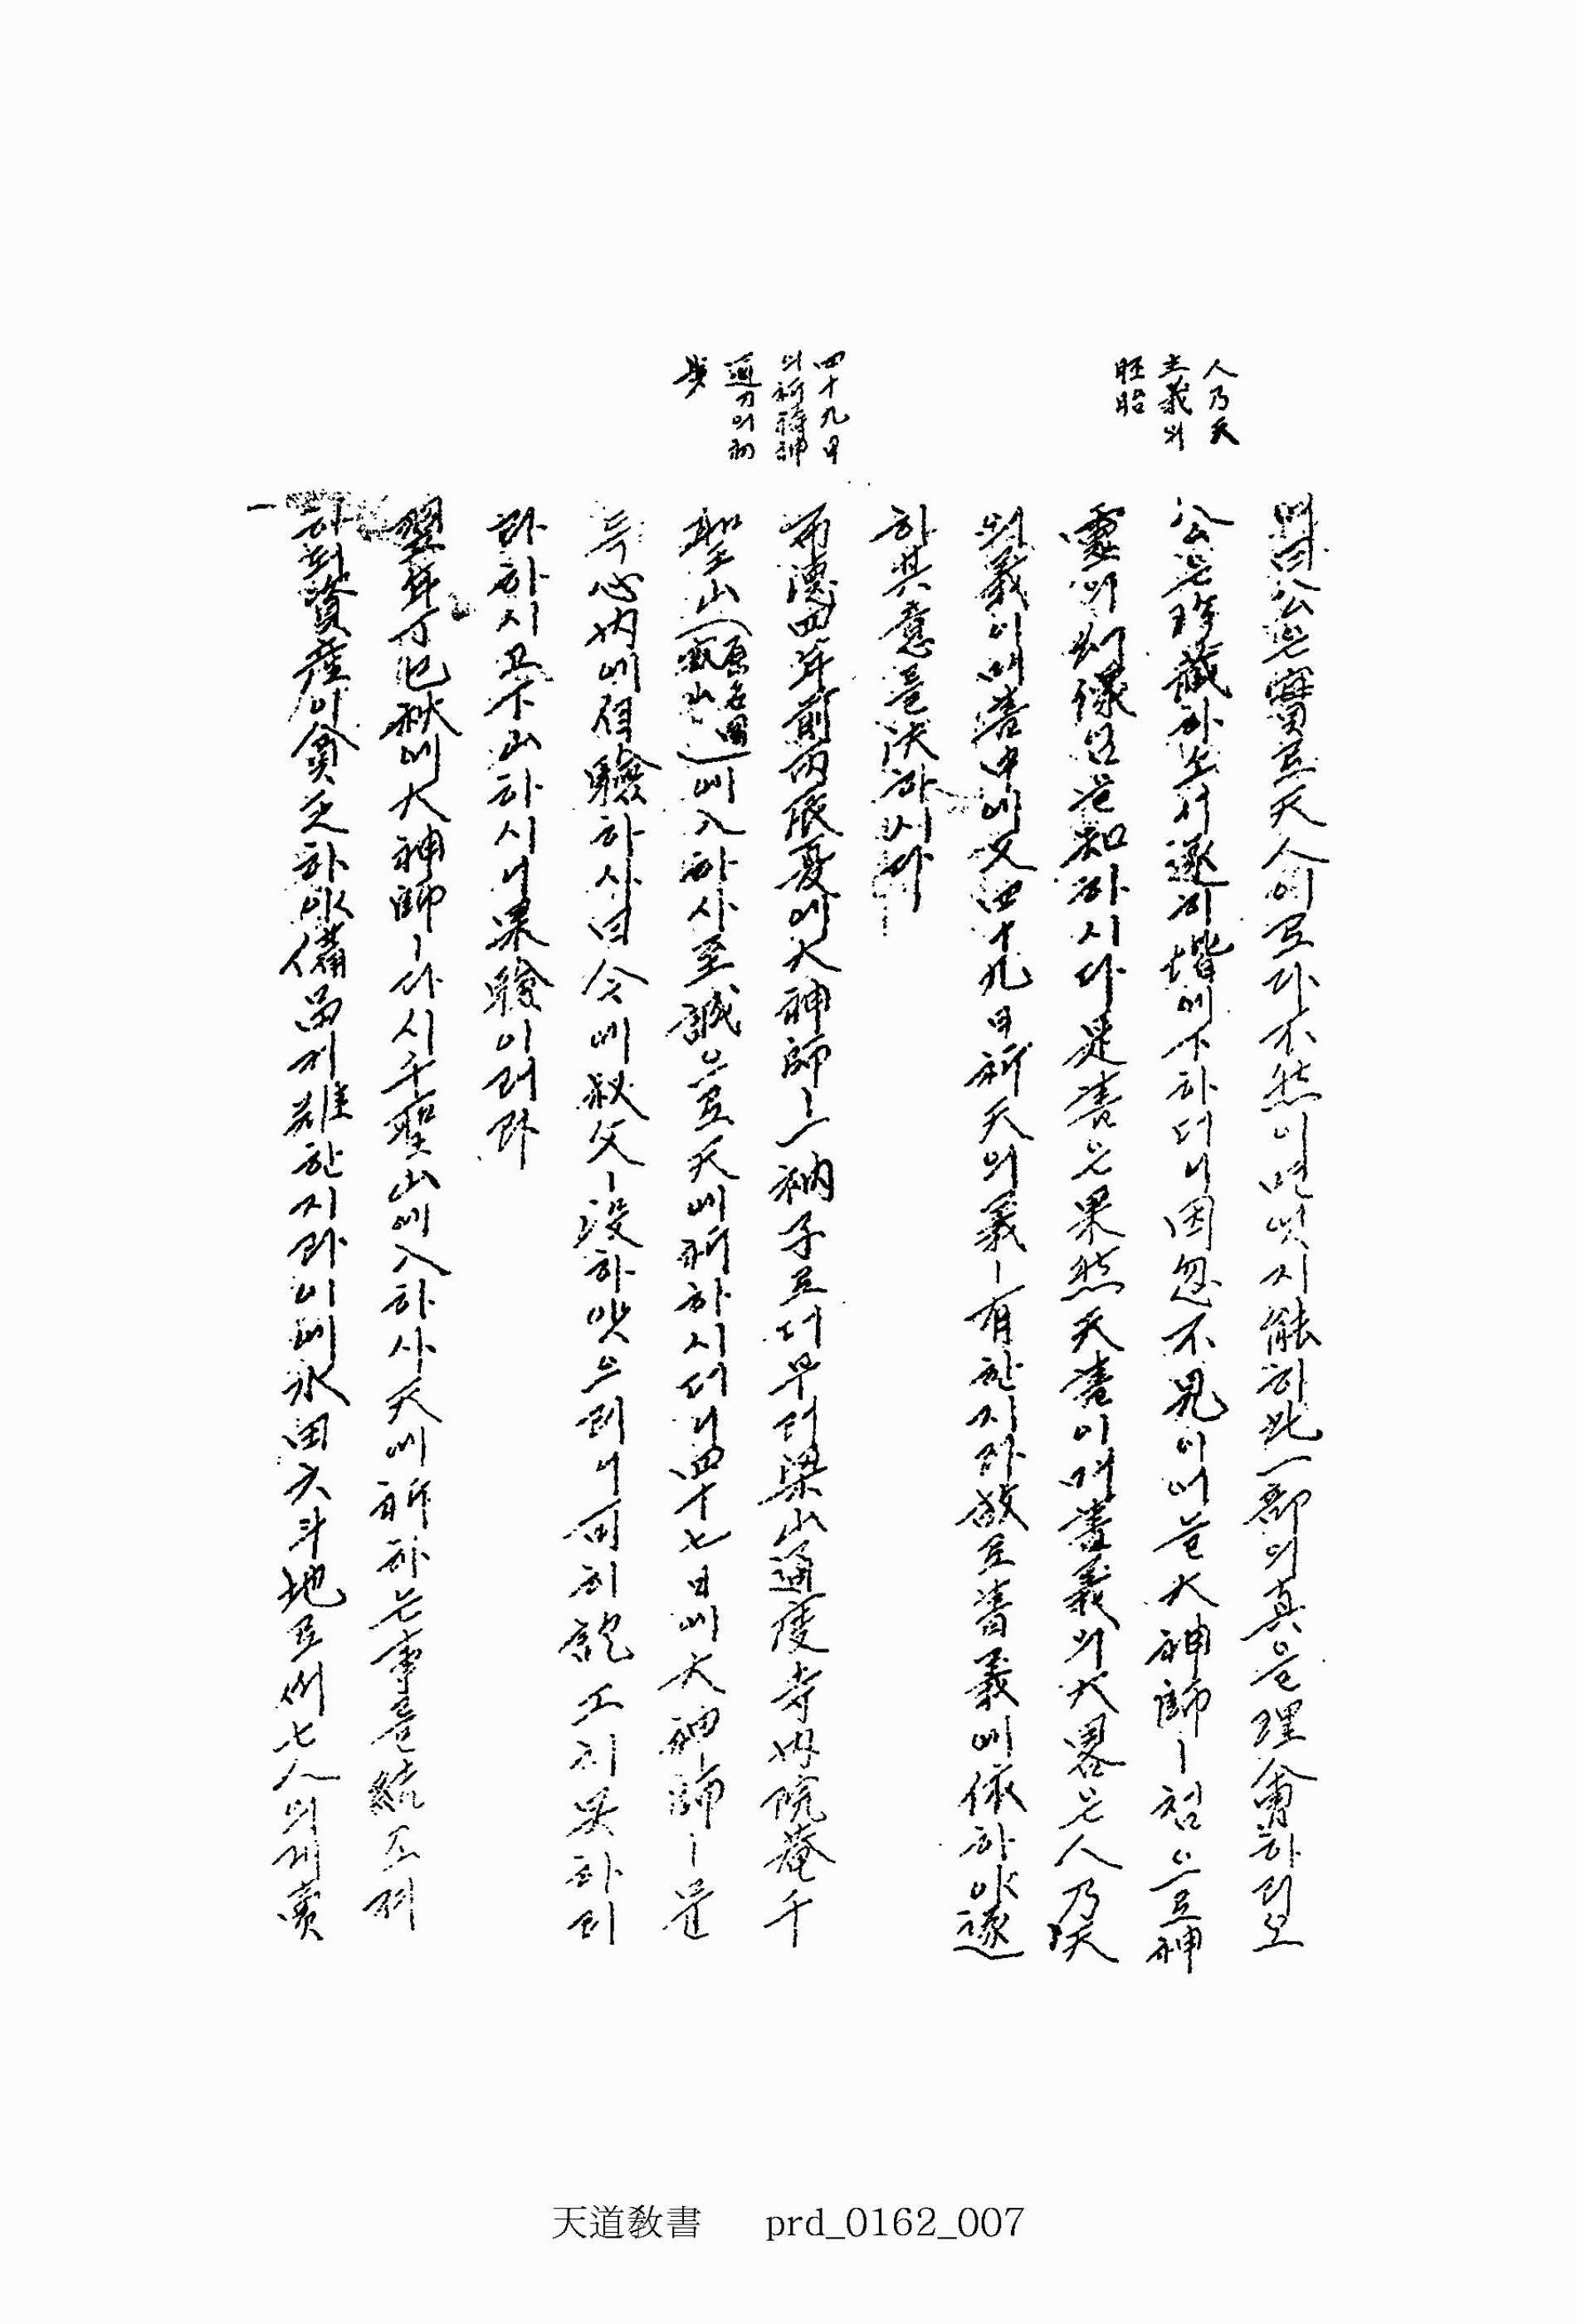 人乃天
主義의
胚胎
四十九日
의祈禱神
通力의初
步
며曰公은實로天人이로다不然이면엇지能히此一部의真을理會하리오
公은珍藏하소셔遂히堦에下하더니因忽不見이어늘大神師ㅣ처음으로神
靈의幻像임을知하시다是書은果然天書이며書義의大畧은人乃天
의義이며書中에又四十九日祈天의義ㅣ有한지라故로書義에依하야遂
히其意를決하시다
布德四年前丙辰夏에大神師ㅣ一衲子로더부러梁山通度寺內院菴千
聖山(原名圓寂山)에入하사至誠으로天에祈하시더니四十七日에大神師ㅣ문
득心內에自驗하사曰今에叔父ㅣ沒하얏으리니可히訖工치못하리
라하시고下山하시니果驗이러라
翌年丁巳秋에大神師ㅣ다시千聖山에入하사天에祈하는事를続코져
하되資產이貧乏하야備品키難한지라이에水田六斗地로써七人의게賣
天道教書 prd_0162_007